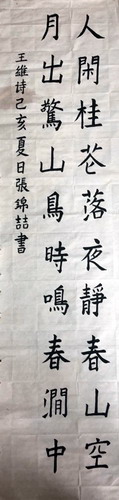 人閑桂花落夜靜春山空
月出驚山鳥時鳴春澗中
王維诗己亥夏日張錦喆書